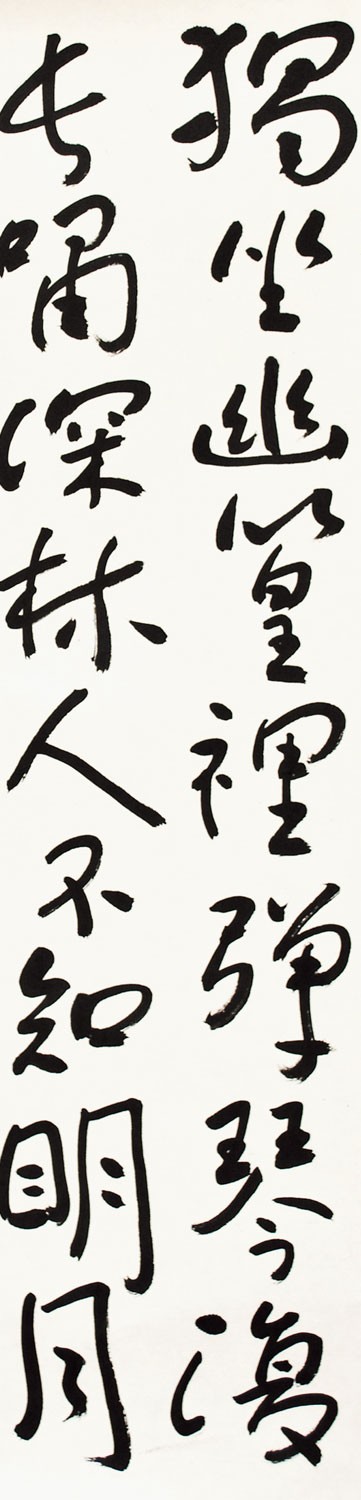 獨坐幽篁裡彈琴復
長嘯深林人不知明月